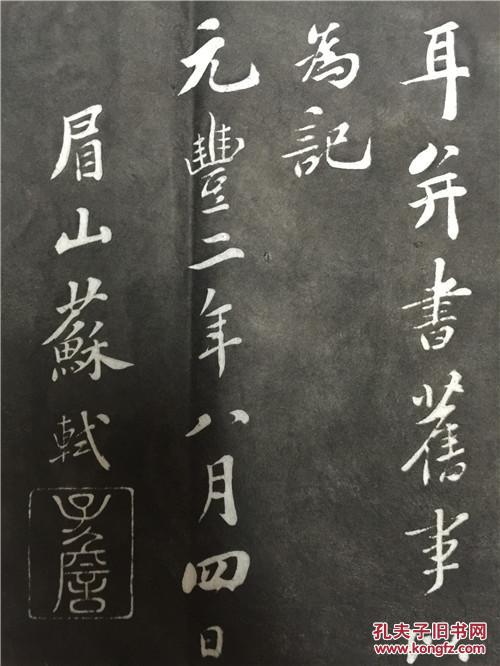 耳并書舊事以
為記
元豐二年八月四日
眉山蘇軾
子瞻
孔夫子旧书网
www.kongfz.com